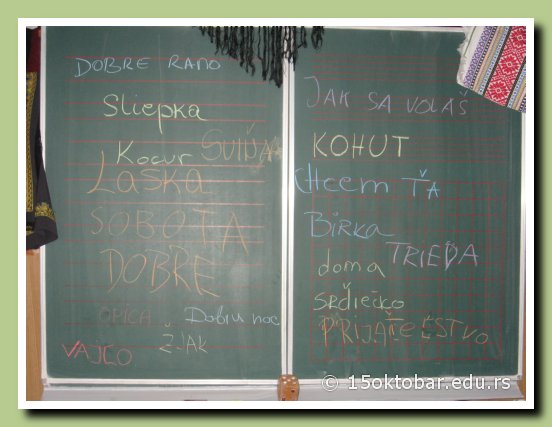 DOBRE RANO
Sliepka
Kocur SVIŇA
LasKa
SOBOTA
DOBRE
OPICA Dobru noc
ŽJAK
VAJCO
JAK SA VOLAŠ
KOHUT
CHcem ŤA
BIRKA
TRIEDA
doma
SRDIEČKO
PRIJAŤEĽSTVO
© 15oktobar.edu.rs